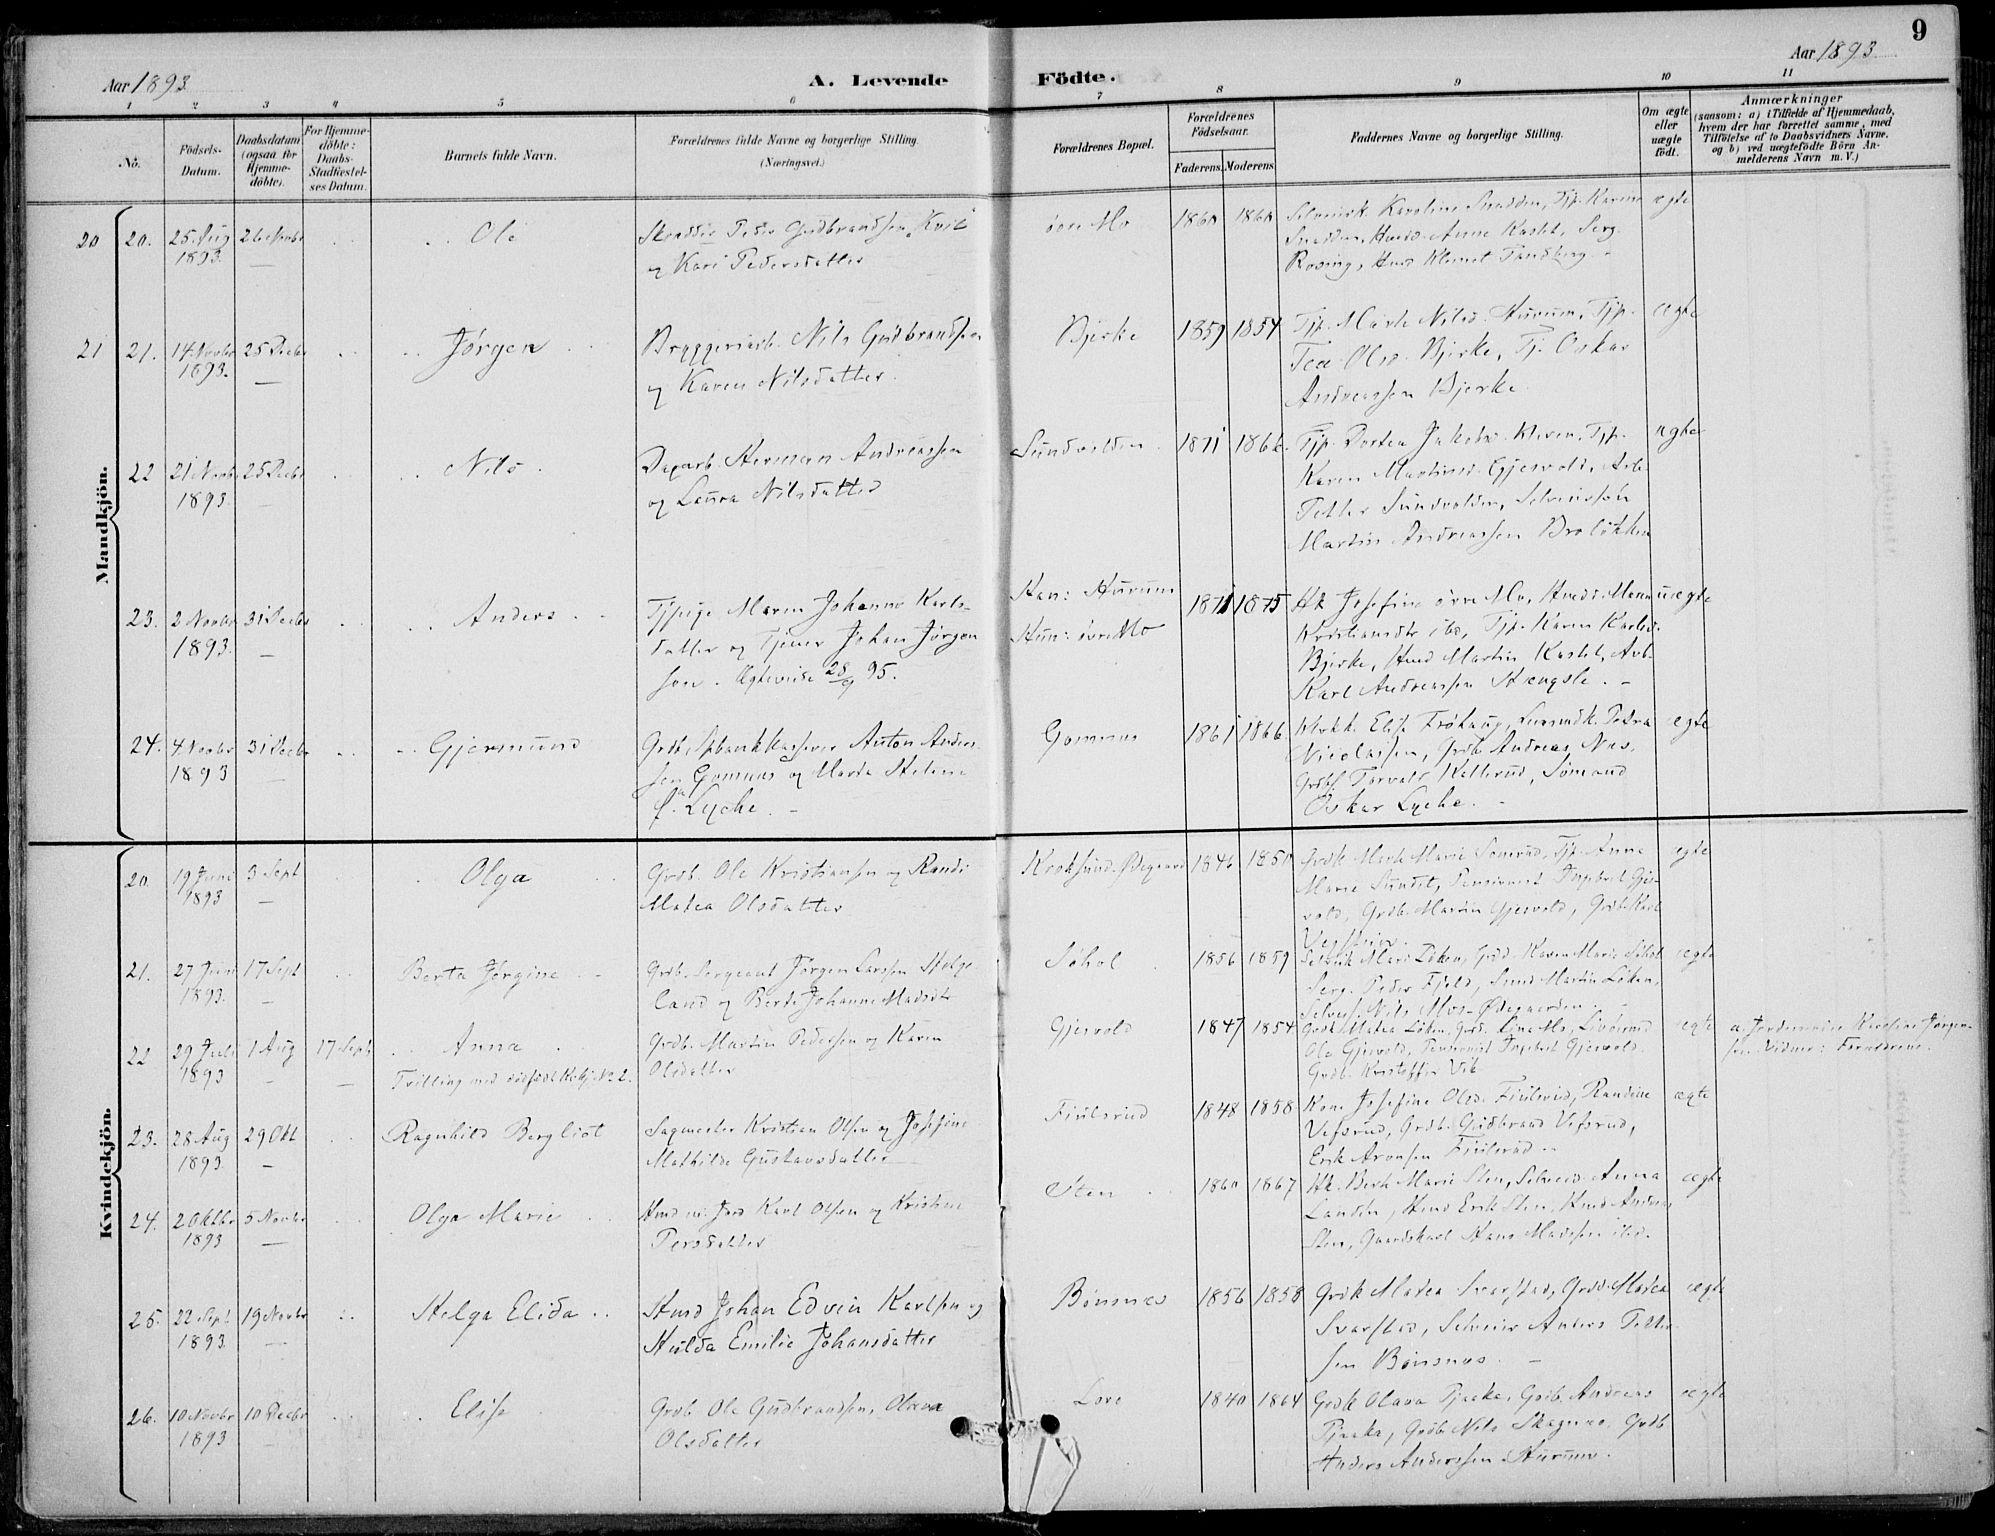 9
Aar 1893
A. Levende Födte.
Aar 1893
1 2 3 4 5 6 7 8 9 10 11
No.
Födsels-Datum.
Daabsdatum (ogsaa for Hjemme-döbte).
For Hjemme-döbte: Daabs-Stadfæstel-ses Datum.
Barnets fulde Navn.
Forældrenes fulde Navne og borgerlige Stilling.
(Næringsvei.)
Forældrenes Bopæl.
Forældrenes Födselsaar.
Faderens. Moderens.
Faddernes Navne og borgerlige Stilling.
Om ægte eller uægte födt.
Anmærkninger
(saasom: a) i Tilfælde af Hjemmedaab,
hvem der har forrettet samme, med
Tilföielse af to Daabsvidners Navne.
og b) ved uægtefödte Börn An-
melderens Navn m. V.)
Mandkjön.
20 20. 25. Aug 1893. 26 Novbr
Ole
Skrædder Peder Gudbrandsen
og Kari Pedersdatter
øvre Mo 1860 1860
Karoline Snedden, Tjp. Karine
Anne Kastet, Serg.
Rosing, Hmd Klemet Tandberg
ægte
21 21. 14. Novbr 1893. 25 Decbr
Jørgen
Bryggeriarb. Nils Gudbrandsen
og Karen Nilsdatter.
Bjerke 1859 1854
Tjp. Marte Nilsd. Hurum, Tjp.
Tea Olsd. Bjerke, Tj. Oskar
Andreassen Bjerke
ægte
22 21 Novbr 1893. 25 Decbr
Nils
Dagarb. Herman Andreassen
og Laura Nilsdatter
Sundvolden 1871 1866
Tjp. Dortea Jakobsd. Tjp.
Karen Martinsd. Gjesvold, Arb.
Petter Sundvolden, Selveierssøn
Martin Andreassen Braløkken
ægte
23. 2 Novbr 1893. 31 Decbr
Anders
Tjpige Maren Johanne Karls-
datter og Tjener Johan Jørgen
sen. Ægteviede 28/9 95.
Han: Hurum
Hun: øvre Mo
1871 1875
Hk. Josefine øvre Mo, Hmds.
Kristiansdtr ibd, Tjp. Karen Karlsd.
Bjerke, Hmd Martin Kastet, Arb.
Karl Andreassen Stengsle.
uægte
24. 4. Novbr 1893 31 Decbr
Gjermund
Grdb. Spbankkasserer Anton Ander-
sen Gomnes og Marta Helene
f. Lyche.
Gomnes 1861 1866
Elise Frøhaug, Petra
Nicolassen, Grdb. Andreas Næs,
Torvald Kollerud, Sømand
Oskar Lyche.
ægte
Kvindekjön.
20. 19 Juni 1893 3 Sept
Olga
Grdb. Ole Kristiansen og Randi
Matea Olsdatter
Kroksund. Ødegaard 1846 1850
Grdk. Marte Marie Tjp. Anne
Marie Sundet, Pensionist Ingebret Gjes-
vold, Grdb. Martin Gjesvold, Grdb. Karl
ægte
21. 27 Juni 1893. 17 Sept
Berta Jørgine
Grdb. Sergeant Jørgen Larssen Helge
land og Berte Johanne Madsdtr
Søhol 1856 1859
Mari Løken, Grdd. Karen Marie Søhol
Serg. Peder Fjeld, Martin Løken,
Nils Mos-Ødegaarden.
ægte
22 29 Juli 1893 1 Aug 17 Sept
Anna
Tvilling med dødfødt
Grdb. Martin Pedersen og Karen
Olsdatter
Gjesvold 1847 1854
Grdk. Matea Løken, Grdd. Line Mo,
Ole Gjesvold, Pensionist Ingebret Gjesvold.
Grdb. Kristoffer Vik
ægte
a. Jordemoder Karoline Jørgen-
sen. Vidner: Forældrene.
23. 28 Aug 1893. 29 Okt
Ragnhild Bergliot
Sagmester Kristian Olsen og Josefine
Mathilde Gustavsdatter
Fiulsrud 1848 1858
Kone Josefine Olsd. Fiulsrud, Randine
Vefsrud, Grdb. Gudbrand Vefsrud,
Erik Aronsen Fiulsrud
ægte
24. 2 Oktbr 1893 5 Novbr
Olga Marie
Hmd m. Jord Karl Olsen og Kristine
Persdatter
Sten 1860 1867
Hk. Berte Marie Sten, Anna
Hmd Erik Sten, Hmd Anders
Sten, Gaardskarl Hans Madssen ibd.
ægte
25. 22 Sept 1893. 19 Novbr
Helga Elida
Hmd Johan Edvin Karlsen og
Hulda Emilie Johansdatter
Bønsnes 1856 1858
Grdk. Matea Svarstad, Grdd. Matea
Svarstad, Selveier Anders Petter-
sen Bønsnes.
ægte
26. 10 Novbr 1893 10 Decbr
Elise
Grdb. Ole Gudbrandsen, Olava
Olsdatter
Lore 1840 1864
Grdk. Olava Pjaaka, Grdb. Andreas
Pjaaka, Grdb. Nils Grdb.
Anders Anderssen Hurum.
ægte